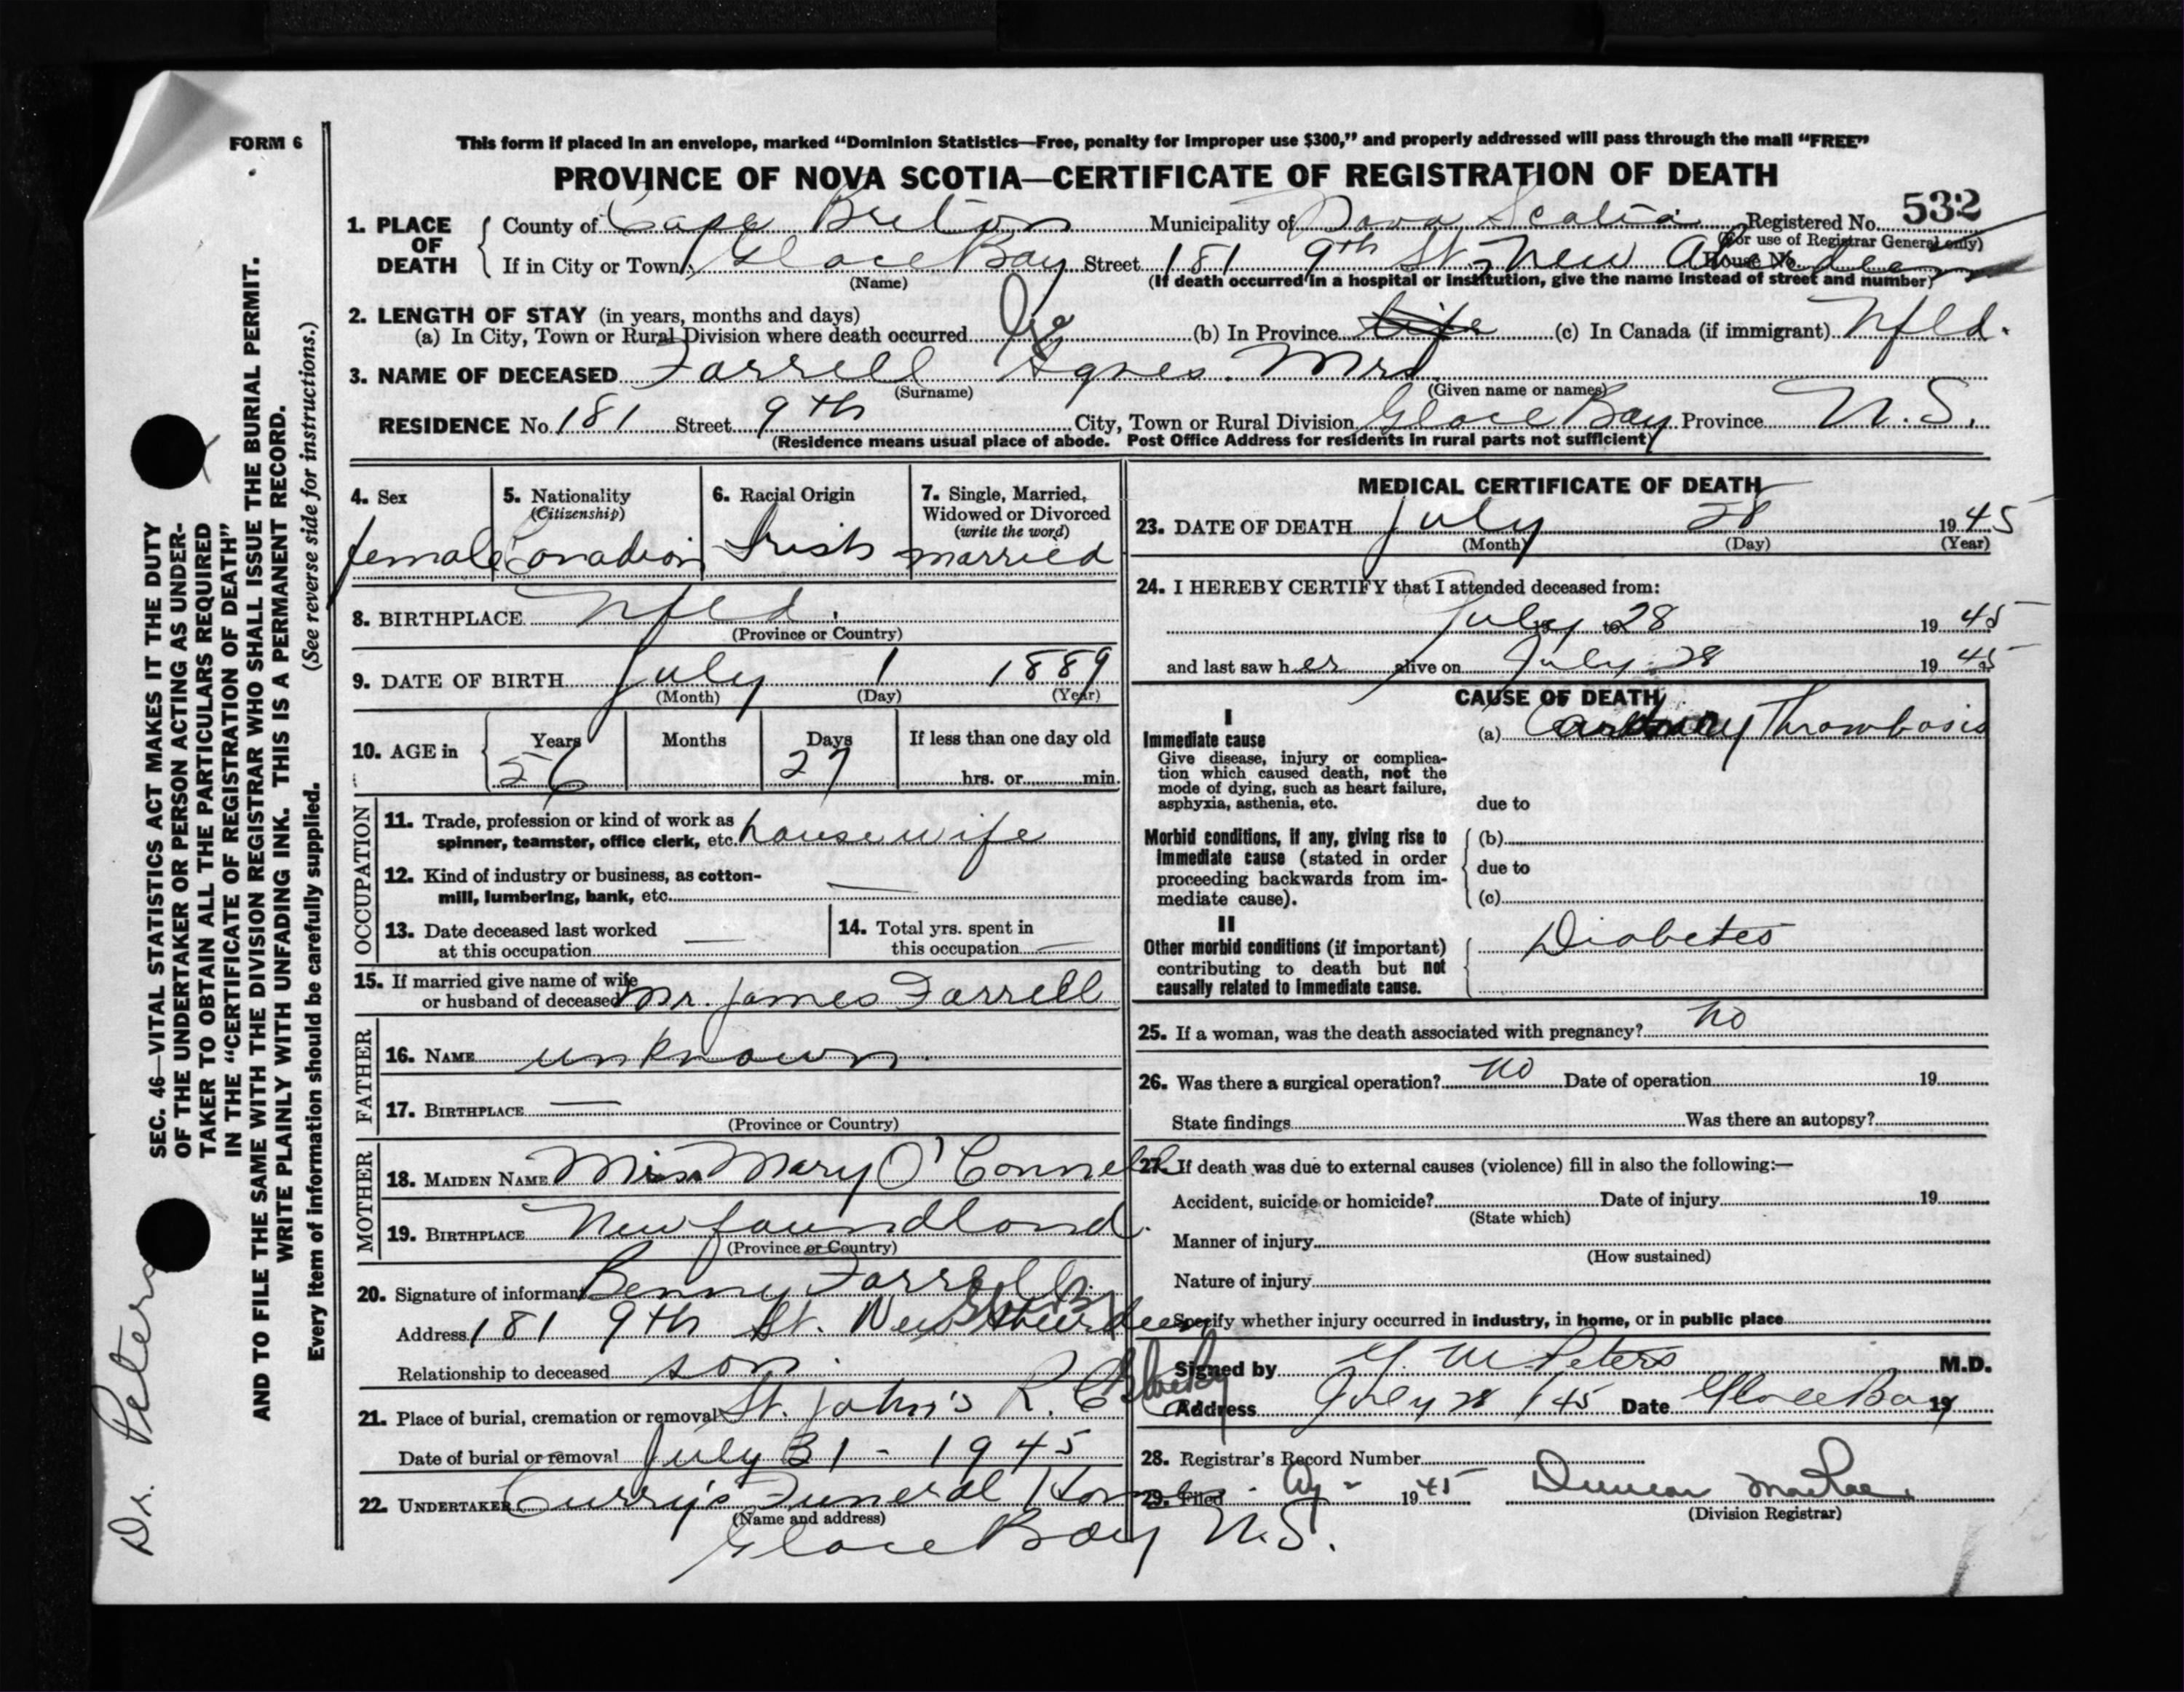 FORM 6
This form if placed in an envelope, marked "Dominion Statistics—Free, penalty for improper use $300," and properly addressed will pass through the mail "FREE"
PROVINCE OF NOVA SCOTIA—CERTIFICATE OF REGISTRATION OF DEATH
1. PLACE OF DEATH County of Cape Breton Municipality of Nova Scotia Registered No. 532
(For use of Registrar General only)
If in City or Town Glace Bay Street 181 9th St. New Aberdeen House No.
(Name) (If death occurred in a hospital or institution, give the name instead of street and number)
2. LENGTH OF STAY (in years, months and days)
(a) In City, Town or Rural Division where death occurred (b) In Province life (c) In Canada (if immigrant) Nfld.
3. NAME OF DECEASED Farrell Agnes. Mrs
(Surname) (Given name or names)
RESIDENCE No. 181 Street 9th City, Town or Rural Division Glace Bay Province N.S.
(Residence means usual place of abode. Post Office Address for residents in rural parts not sufficient)
4. Sex 5. Nationality (Citizenship) 6. Racial Origin 7. Single, Married, Widowed or Divorced (write the word)
female Canadian Irish married
8. BIRTHPLACE Nfld.
(Province or Country)
9. DATE OF BIRTH July 1 1889
(Month) (Day) (Year)
10. AGE in Years Months Days If less than one day old
56 27 hrs. or min.
OCCUPATION
11. Trade, profession or kind of work as
spinner, teamster, office clerk, etc. housewife
12. Kind of industry or business, as cotton-
mill, lumbering, bank, etc. —
13. Date deceased last worked
at this occupation —
14. Total yrs. spent in
this occupation —
15. If married give name of wife
or husband of deceased Mr. James Farrell
FATHER
16. NAME unknown
17. BIRTHPLACE —
(Province or Country)
MOTHER
18. MAIDEN NAME Miss Mary O'Connell
19. BIRTHPLACE Newfoundland.
(Province or Country)
20. Signature of informant Benny Farrell
Address 181 9th St. New Aberdeen
Glace Bay
Relationship to deceased son.
21. Place of burial, cremation or removal St. John's R.C.
Date of burial or removal July 31 - 1945
22. UNDERTAKER Curry's Funeral Home
(Name and address)
Glace Bay N.S.
MEDICAL CERTIFICATE OF DEATH
23. DATE OF DEATH July 28 1945
(Month) (Day) (Year)
24. I HEREBY CERTIFY that I attended deceased from:
July 19 to 28 1945
and last saw her alive on July 28 1945
CAUSE OF DEATH
I
Immediate cause (a) Coronary Thrombosis
Give disease, injury or complica-
tion which caused death, not the
mode of dying, such as heart failure,
asphyxia, asthenia, etc. due to
Morbid conditions, if any, giving rise to (b)
immediate cause (stated in order
proceeding backwards from im- due to
mediate cause). (c)
II
Other morbid conditions (if important) Diabetes
contributing to death but not
causally related to immediate cause.
25. If a woman, was the death associated with pregnancy? no
26. Was there a surgical operation? no Date of operation 19
State findings Was there an autopsy?
27. If death was due to external causes (violence) fill in also the following:—
Accident, suicide or homicide? Date of injury 19
(State which)
Manner of injury
(How sustained)
Nature of injury
Specify whether injury occurred in industry, in home, or in public place
Signed by Peters M.D.
Address July 28/45 Date Glace Bay 19
28. Registrar's Record Number
29. Filed 1945 Duncan MacRae
(Division Registrar)
SEC. 46—VITAL STATISTICS ACT MAKES IT THE DUTY
OF THE UNDERTAKER OR PERSON ACTING AS UNDER-
TAKER TO OBTAIN ALL THE PARTICULARS REQUIRED
IN THE "CERTIFICATE OF REGISTRATION OF DEATH"
AND TO FILE THE SAME WITH THE DIVISION REGISTRAR WHO SHALL ISSUE THE BURIAL PERMIT.
WRITE PLAINLY WITH UNFADING INK. THIS IS A PERMANENT RECORD.
Every item of information should be carefully supplied. (See reverse side for instructions.)
Dr. Peters